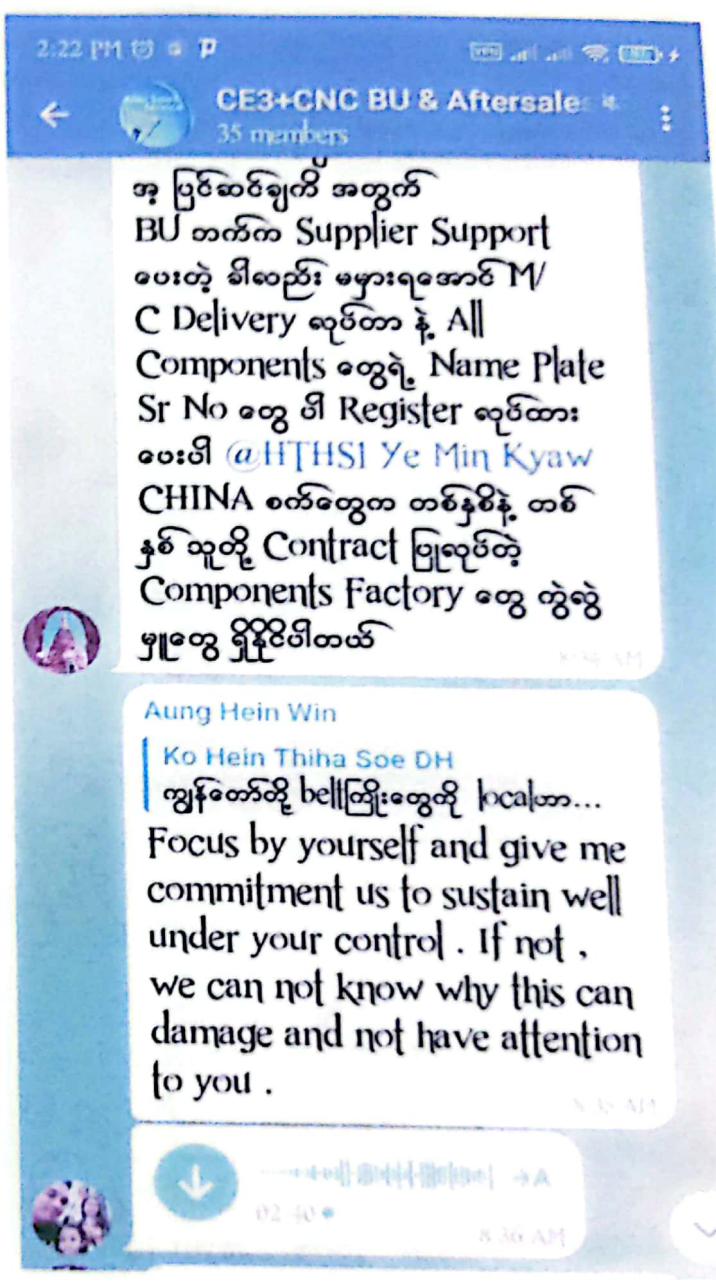 2:22 PM
CE3+CNC BU & Aftersales
35 members
အ့ ပြင်ဆင်ချက် အတွက်
BU ဘက်က Supplier Support
ပေးတဲ့ ခါလည်း မမှားရအောင် M/
C Delivery လုပ်တာ နဲ့ All
Components တွေရဲ့ Name Plate
Sr No တွေ ပါ Register လုပ်ထား
ပေးပါ @HTHS1 Ye Min Kyaw
CHINA စက်တွေက တစ်နှစ်နဲ့ တစ်
နှစ် သူတို့ Contract ပြုလုပ်တဲ့
Components Factory တွေ ကွဲလွဲ
မှုတွေ ရှိနိုင်ပါတယ်
8:34 AM
Aung Hein Win
Ko Hein Thiha Soe DH
ကျွန်တော်တို့ beltကြိုးတွေကို localဟာ...
Focus by yourself and give me
commitment us to sustain well
under your control . If not ,
we can not know why this can
damage and not have attention
to you .
8:35 AM
→A
02:40
8:36 AM